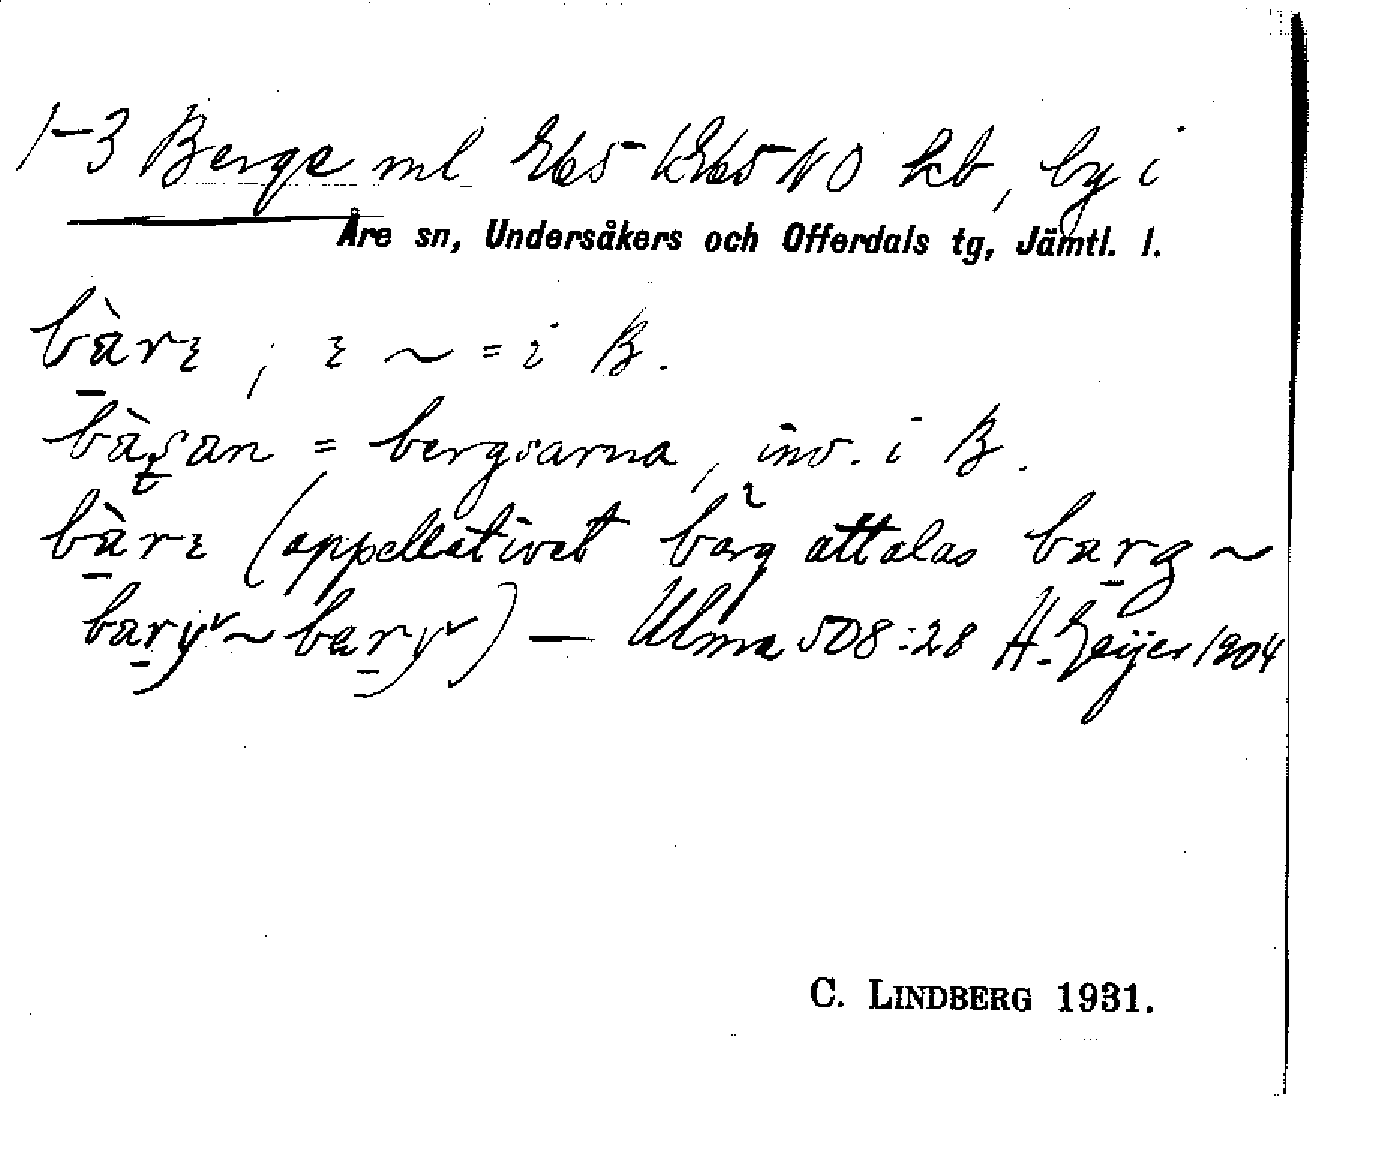 1-3 Berge ml Eb5 kEb5 NO kb, by i
Åre sn, Undersåkers och Offerdals tg, Jämtl. l.
bàrɛ ; ɛ ~ = i B.
bàṣan = bergsarna, inv. i B.
bàrɛ (appellativet bärg uttalas barg ~
bary ~ bary) — Ulma 508:28 H. Geijer 1904
C. LINDBERG 1931.